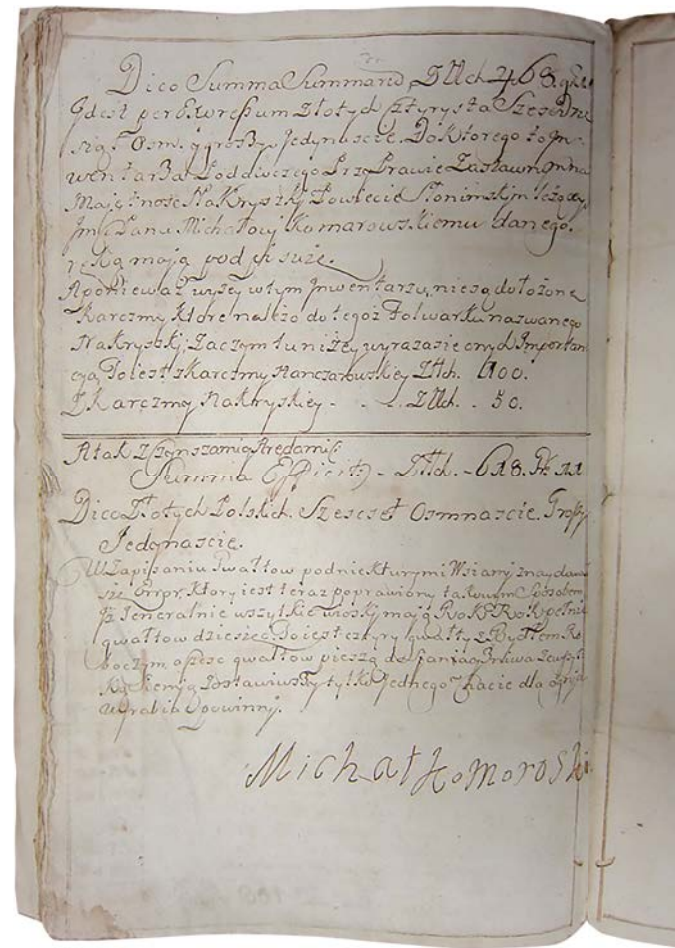 Dico Summa Summarum, Złłch 468. gr. 11
Jdest per Expressum Złotych cztyrysta Szescdzie
siąt Osm. y groszy Jedynascie. Do Ktorego to Jn-
wentarza Poddawczego Przy Prawie Zastawnym na
Maiętnosc Nakryszki w Powiecie Słonimskim leżącey
Jmći Panu Michałowi Komarowskiemu danego.
ręką moią podpisuię.
A ponieważ wyżey w tym Jnwentarzu, nie są dołożone
Karczmy ktore należo do tegoż Folwarku nazwanego
Nakryszki, Zaczym tu niżey wyraza sie onych Jmportan
cya, To iest z karczmy Hanczarowskiey Złłch. 100.
Z Karczmy Nakryskiey - - . Złłch. . 50.
A tak z Czynszami y Arędami
Summa Efficit - Złłch. - 618. gr. 11
Dico Złotych Polskich. Szescset Osmnascie. Groszy
Jedynascie.
W Zapisaniu Gwałtow pod niekturymi Wsiami znaydował
sie Error, Ktory iest teraz poprawiony takowym Sposobem
Jż Jeneralnie wszytkie wioski maią Rok w Rok pełnic
gwałtow dziesięc. To iest cztyry gwałty z Bydłem Ro
boczym a szesc gwałtow pieszą do siania y Zniwa
zostawiwszy tylko Jednego w chacie dla ognia
powinny.
Michał Komoroski